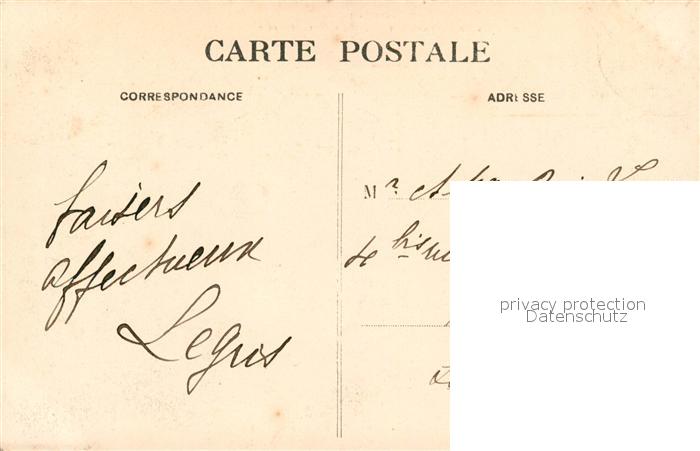 CARTE POSTALE
CORRESPONDANCE
ADRESSE
Baisers
affectueux
Legris
Mr
4 bis
privacy protection
Datenschutz